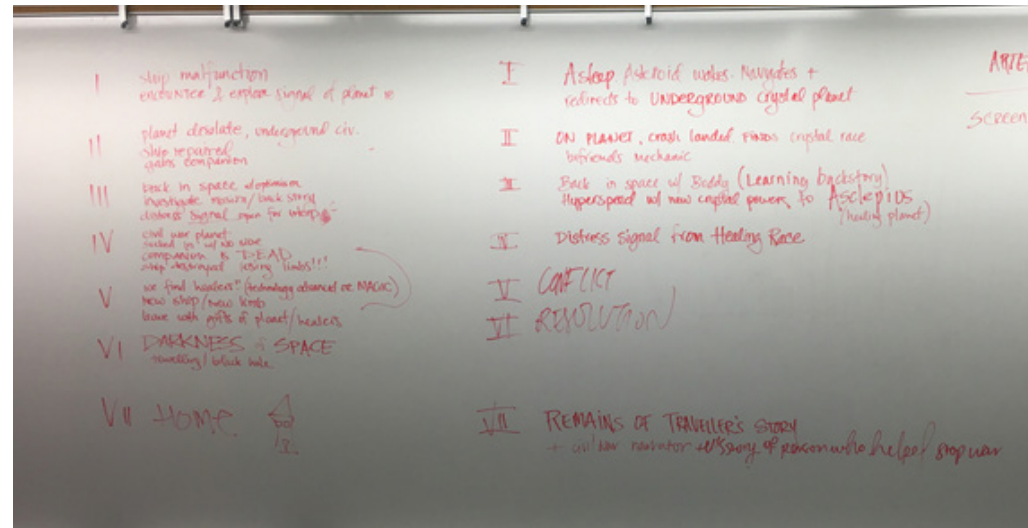 I ship malfunction
ENCOUNTER & explore signal of planet
II planet desolate, underground civ.
ship repaired
gains companion
III back in space w/optimism
investigate back story
distress signal
IV civil war planet
sucked in w/ NO
companion is DEAD
ship destroyed losing limbs!!!
V we find healers!! (technology advanced or MAGIC)
new ship/new limb
leave with gifts of planet/healers
VI DARKNESS of SPACE
travelling/black hole
VII HOMe
I Asleep Asteroid wakes. Navigates +
redirects to UNDERGROUND crystal planet
II ON PLANET, crash landed. FINDS crystal race
befriends mechanic
III Back in space w/ Buddy (Learning backstory)
Hyperspeed w/ new crystal powers to AScLEPIDS
(healing planet)
IV Distress Signal from Healing Race
V CONFLICT
VI RESOLUTION
VII REMAINS OF TRAVELLER'S STORY
+ civil war narrator tells story of person who helped stop war
ARTE
SCREEN